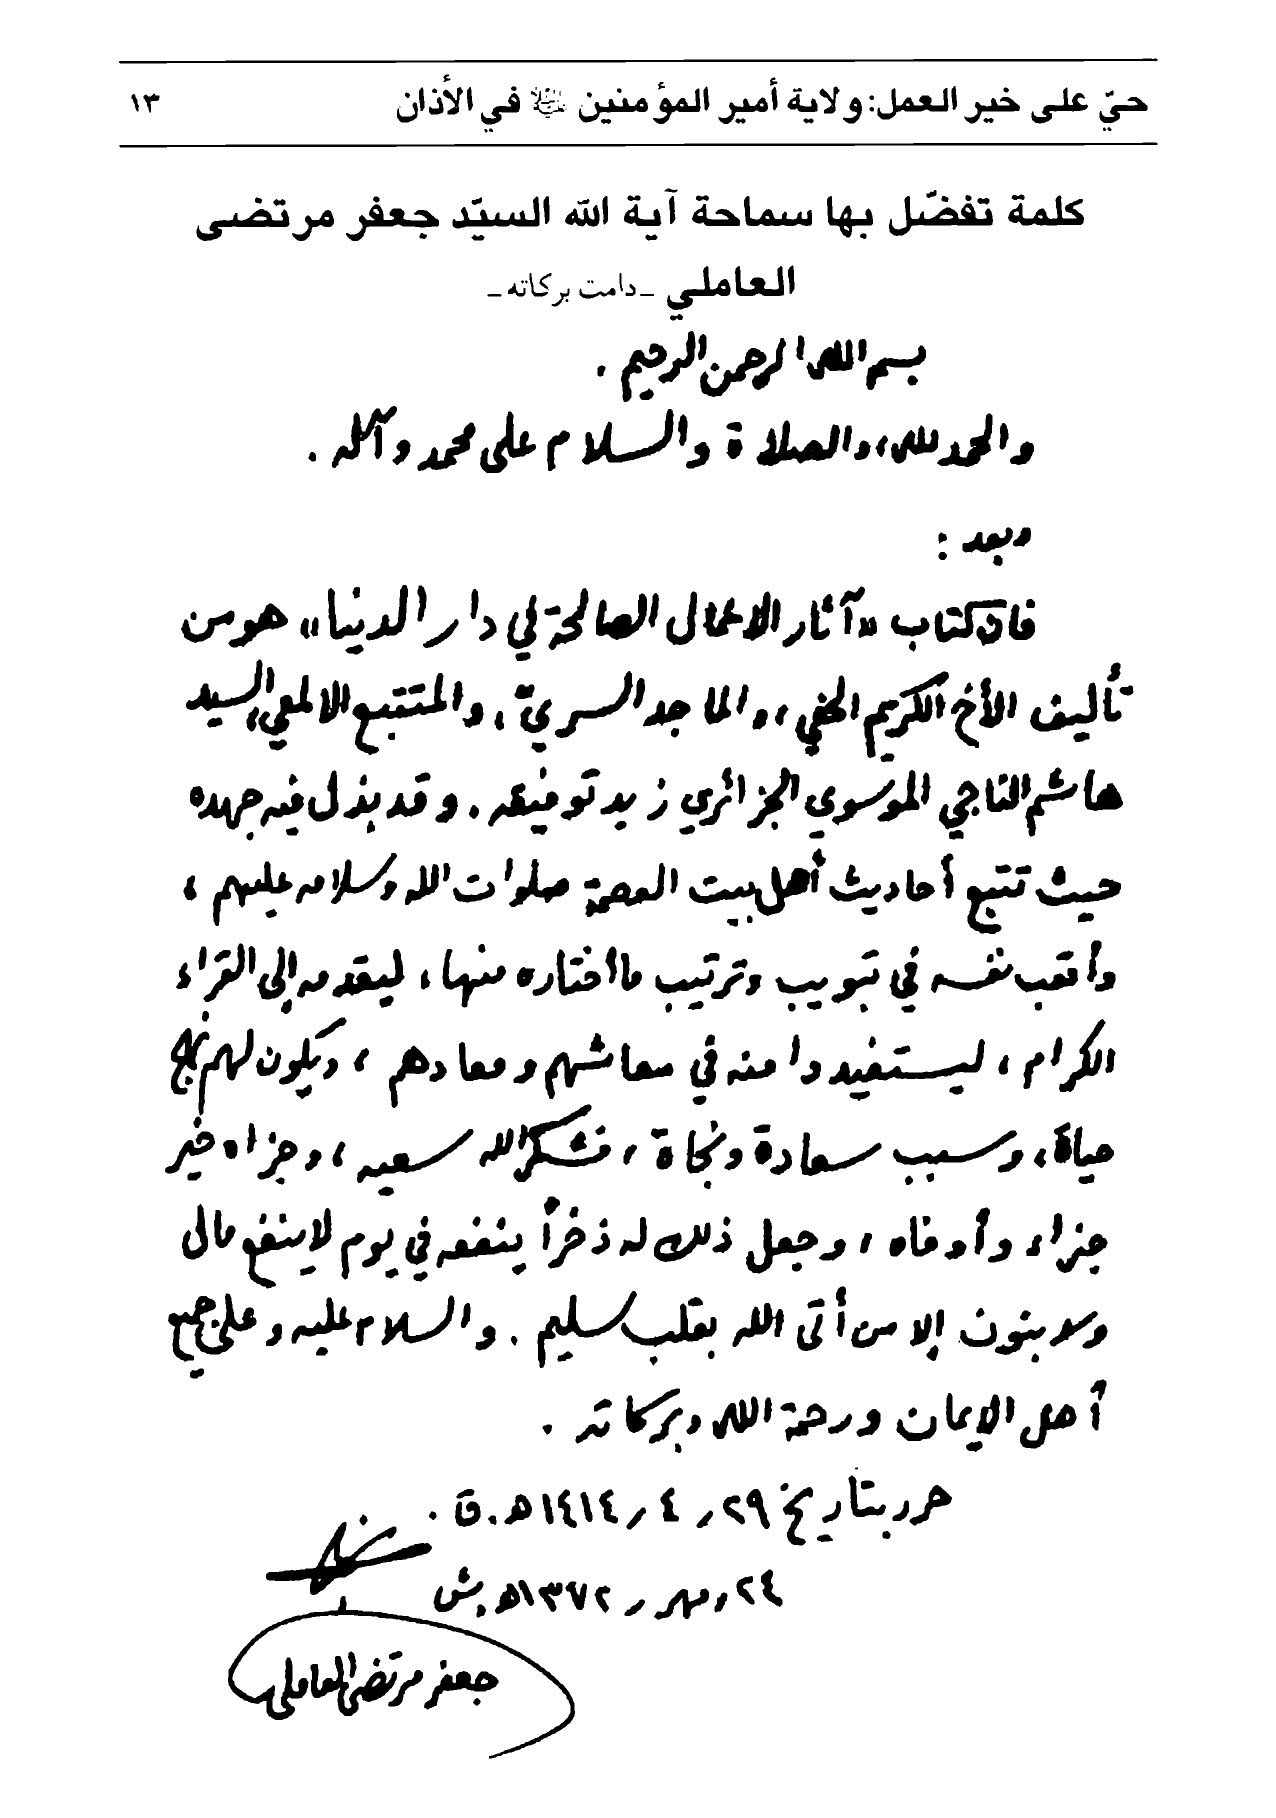 حيّ على خير العمل: ولاية أمير المؤمنين عليه السلام في الأذان ١٣
كلمة تفضّل بها سماحة آية الله السيّد جعفر مرتضى
العاملي _دامت بركاته_
بسم الله الرحمن الرحيم .
والحمد لله، والصلاة والسلام على محمد وآله .
وبعد :
فان كتاب «آثار الاعمال الصالحة في دار الدنيا» هو من
تأليف الأخ الكريم الحفي، والماجد السريّ، والمتتبع الالمعي، السيد
هاشم الناجي الموسوي الجزائري زيد توفيقه . وقد بذل فيه جهده
حيث تتبع أحاديث أهل بيت العصمة صلوات الله وسلامه عليهم ،
وأتعب نفسه في تبويب وترتيب ما أختاره منها، ليقدمه إلى القراء
الكرام ، ليستفيدوا منه في معاشهم ومعادهم ، ويكون لهم نهج
حياة، وسبب سعادة ونجاة ، فشكر الله سعيه ، وجزاه خير
جزاء وأوفاه ، وجعل ذلك له ذخراً ينفعه في يوم لا ينفع مال
ولا بنون إلا من أتى الله بقلب سليم . والسلام عليه وعلى جميع
أهل الايمان ورحمة الله وبركاته .
حرر بتاريخ ٢٩ ر ٤ ر ١٤١٤ هـ . ق .
٢٤ ر مهر ر ١٣٧٢ هـ . ش
جعفر مرتضى العاملي